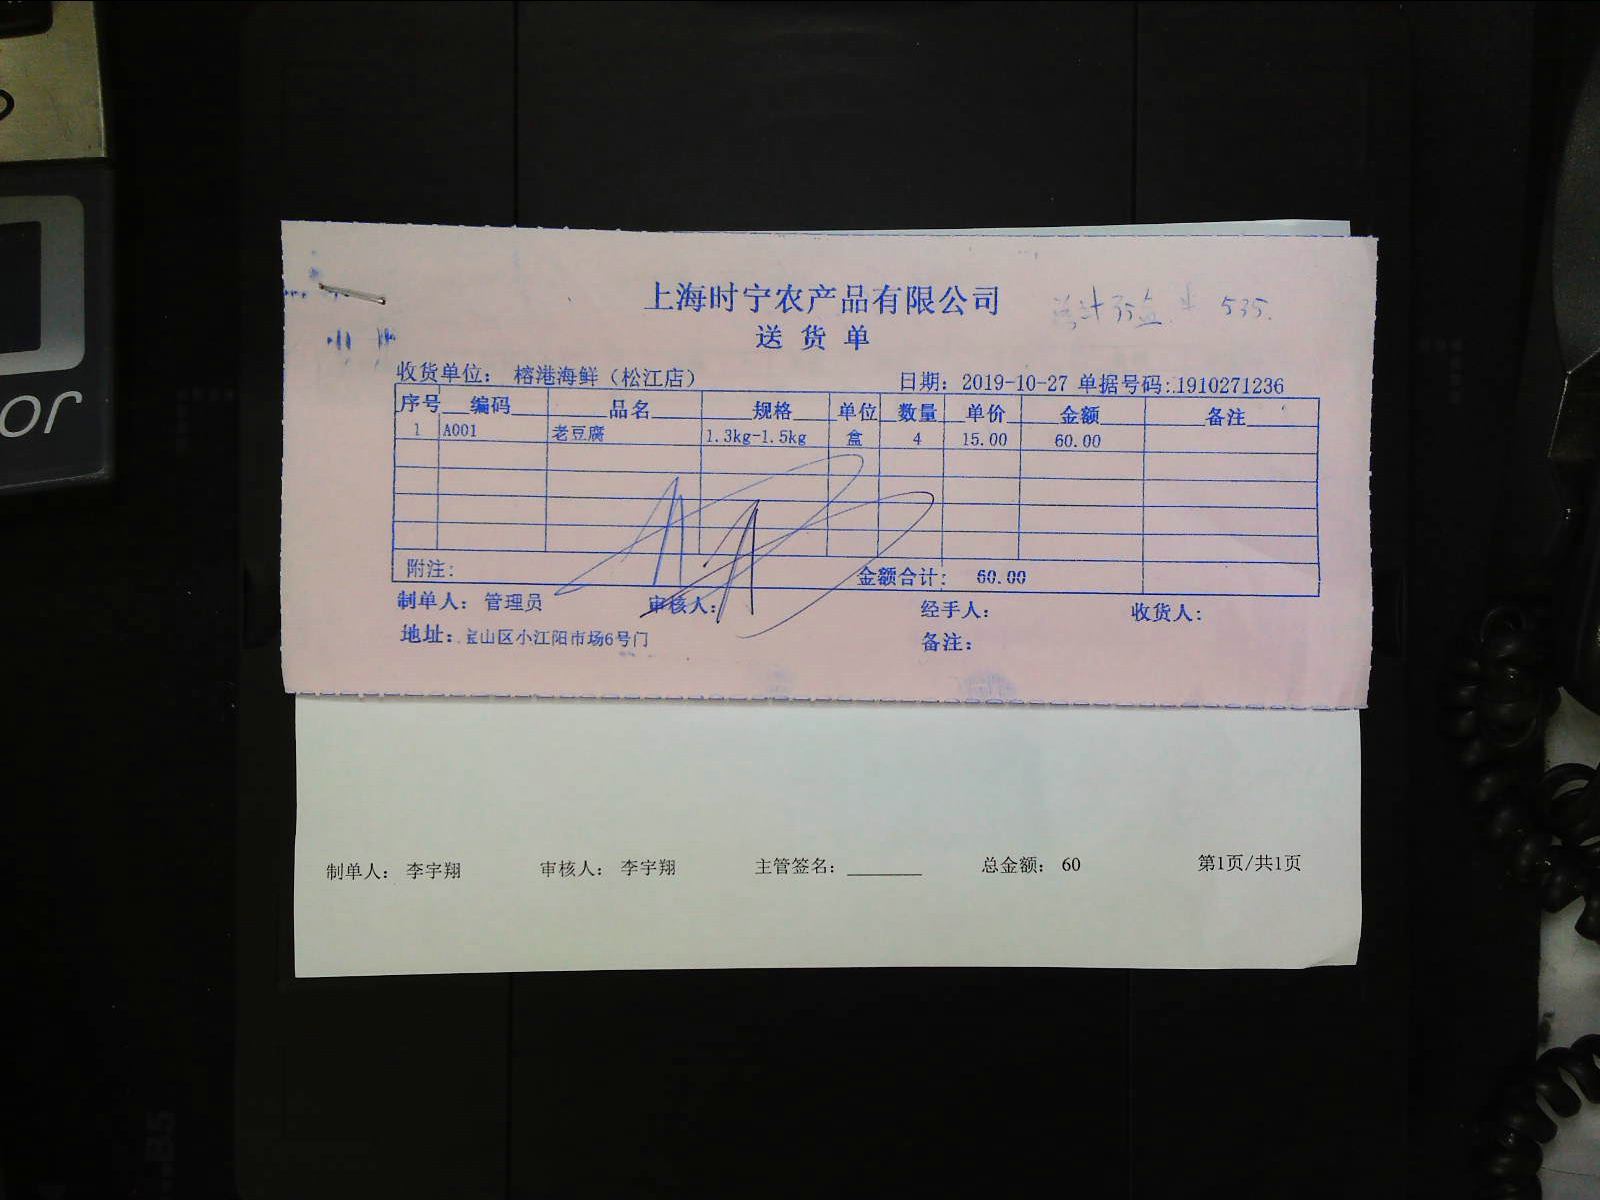 上海时宁农产品有限公司
送货单
收货单位： 榕港海鲜（松江店） 日期：2019-10-27 单据号码：1910271236
序号 编码 品名 规格 单位 数量 单价 金额 备注
1 A001 老豆腐 1.3kg-1.5kg 盒 4 15.00 60.00
附注： 金额合计： 60.00
制单人：管理员 审核人： 经手人： 收货人：
地址：宝山区小江阳市场6号门 备注：
制单人： 李宇翔 审核人： 李宇翔 主管签名： 总金额： 60 第1页/共1页
or
535.